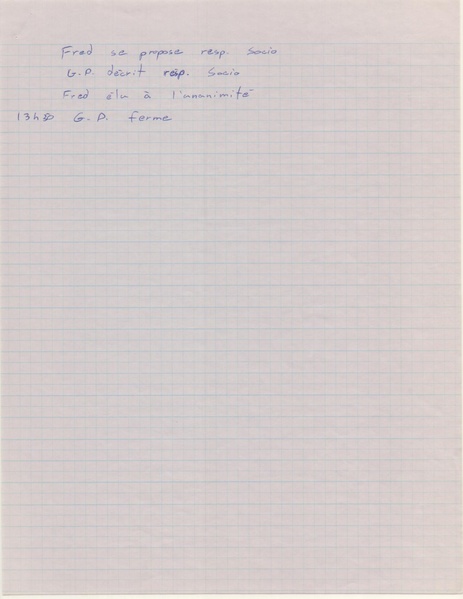 Fred se propose resp. Socio
G.P. décrit resp. Socio
Fred élu à l'unanimité
13h30 G.P. ferme